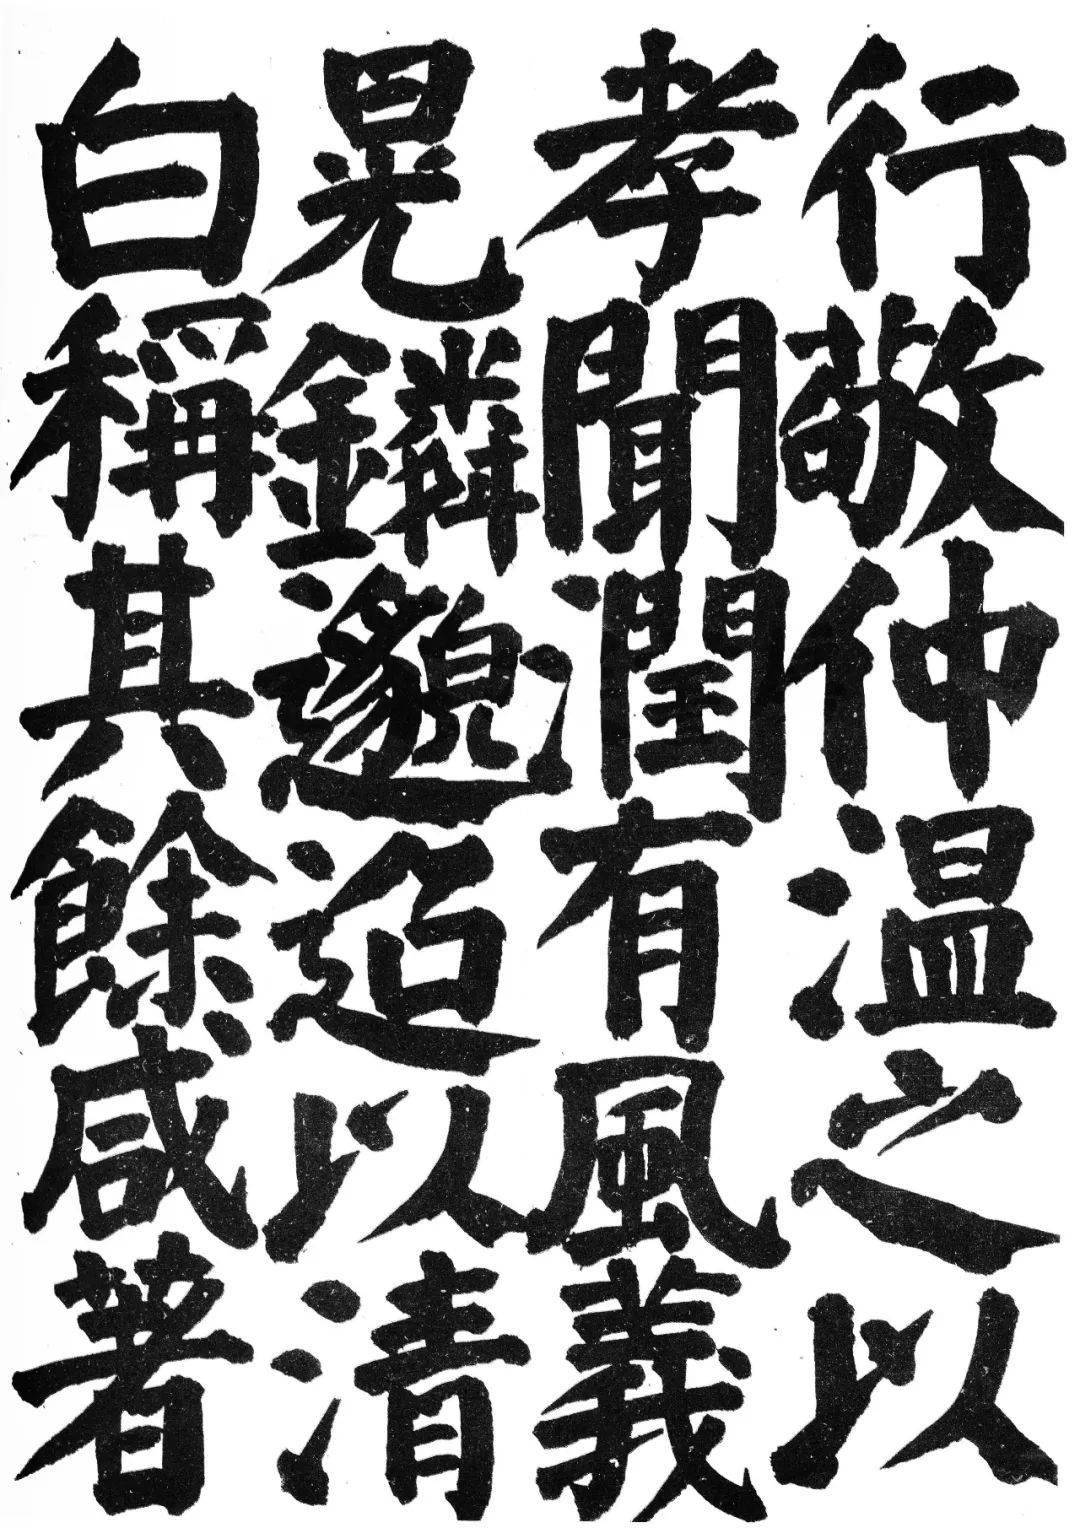 行敬仲温之以
孝聞潤有風義
晃鏻邈迢以清
白稱其餘咸著